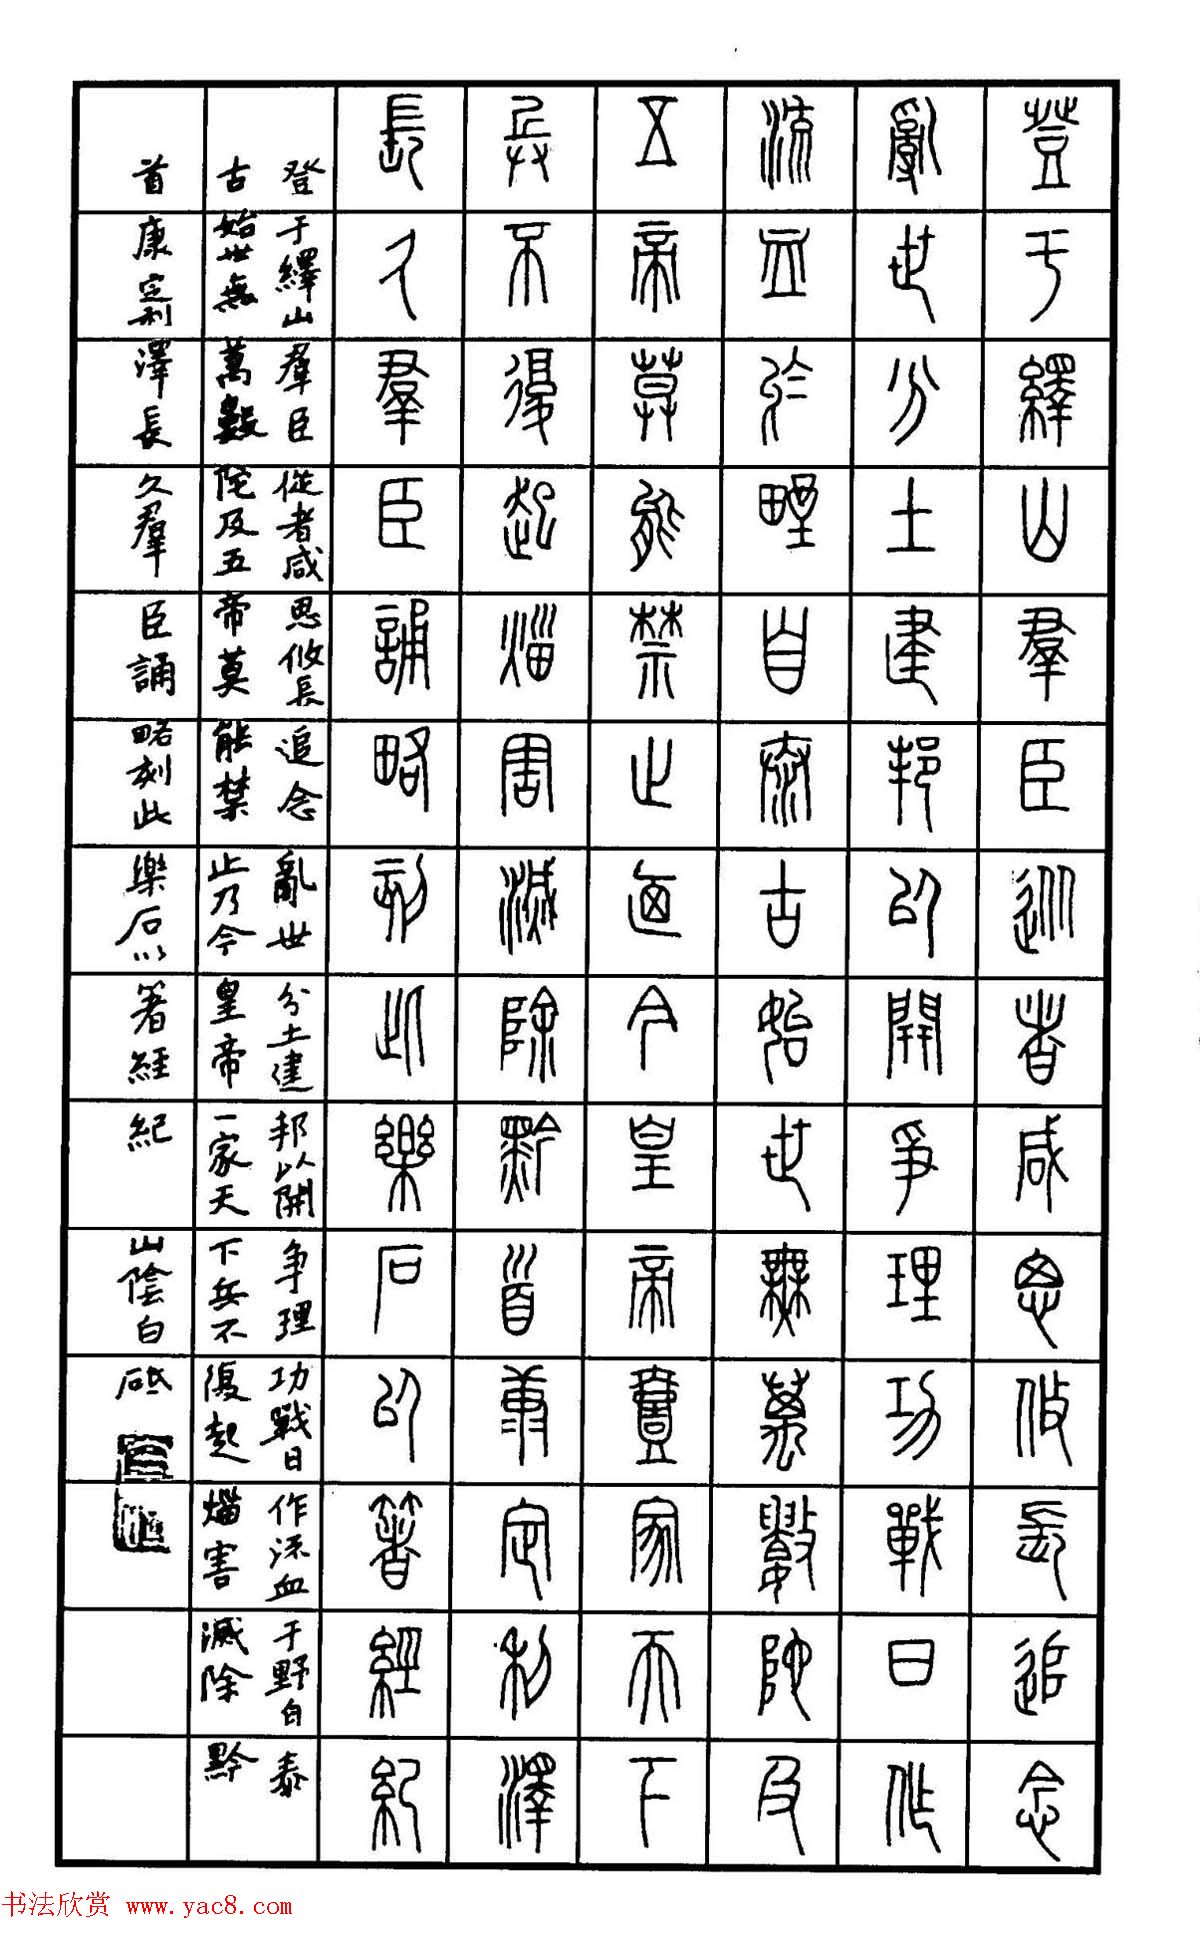 登于繹山羣臣從者咸思攸長追念
亂世分土建邦以開爭理功戰日作
流血於野自泰古始世無萬數陀及
五帝莫能禁止廼今皇帝壹家天下
兵不復起災害滅除黔首康定利澤
長久羣臣誦略刻此樂石以箸經紀
登于繹山羣臣從者咸思攸長追念亂世分土建邦以開爭理功戰日作流血于野自泰
古始世無萬數陀及五帝莫能禁止乃今皇帝一家天下兵不復起災害滅除黔
首康定利澤長久羣臣誦略刻此樂石以箸經紀 山陰白砥
书法欣赏 www.yac8.com